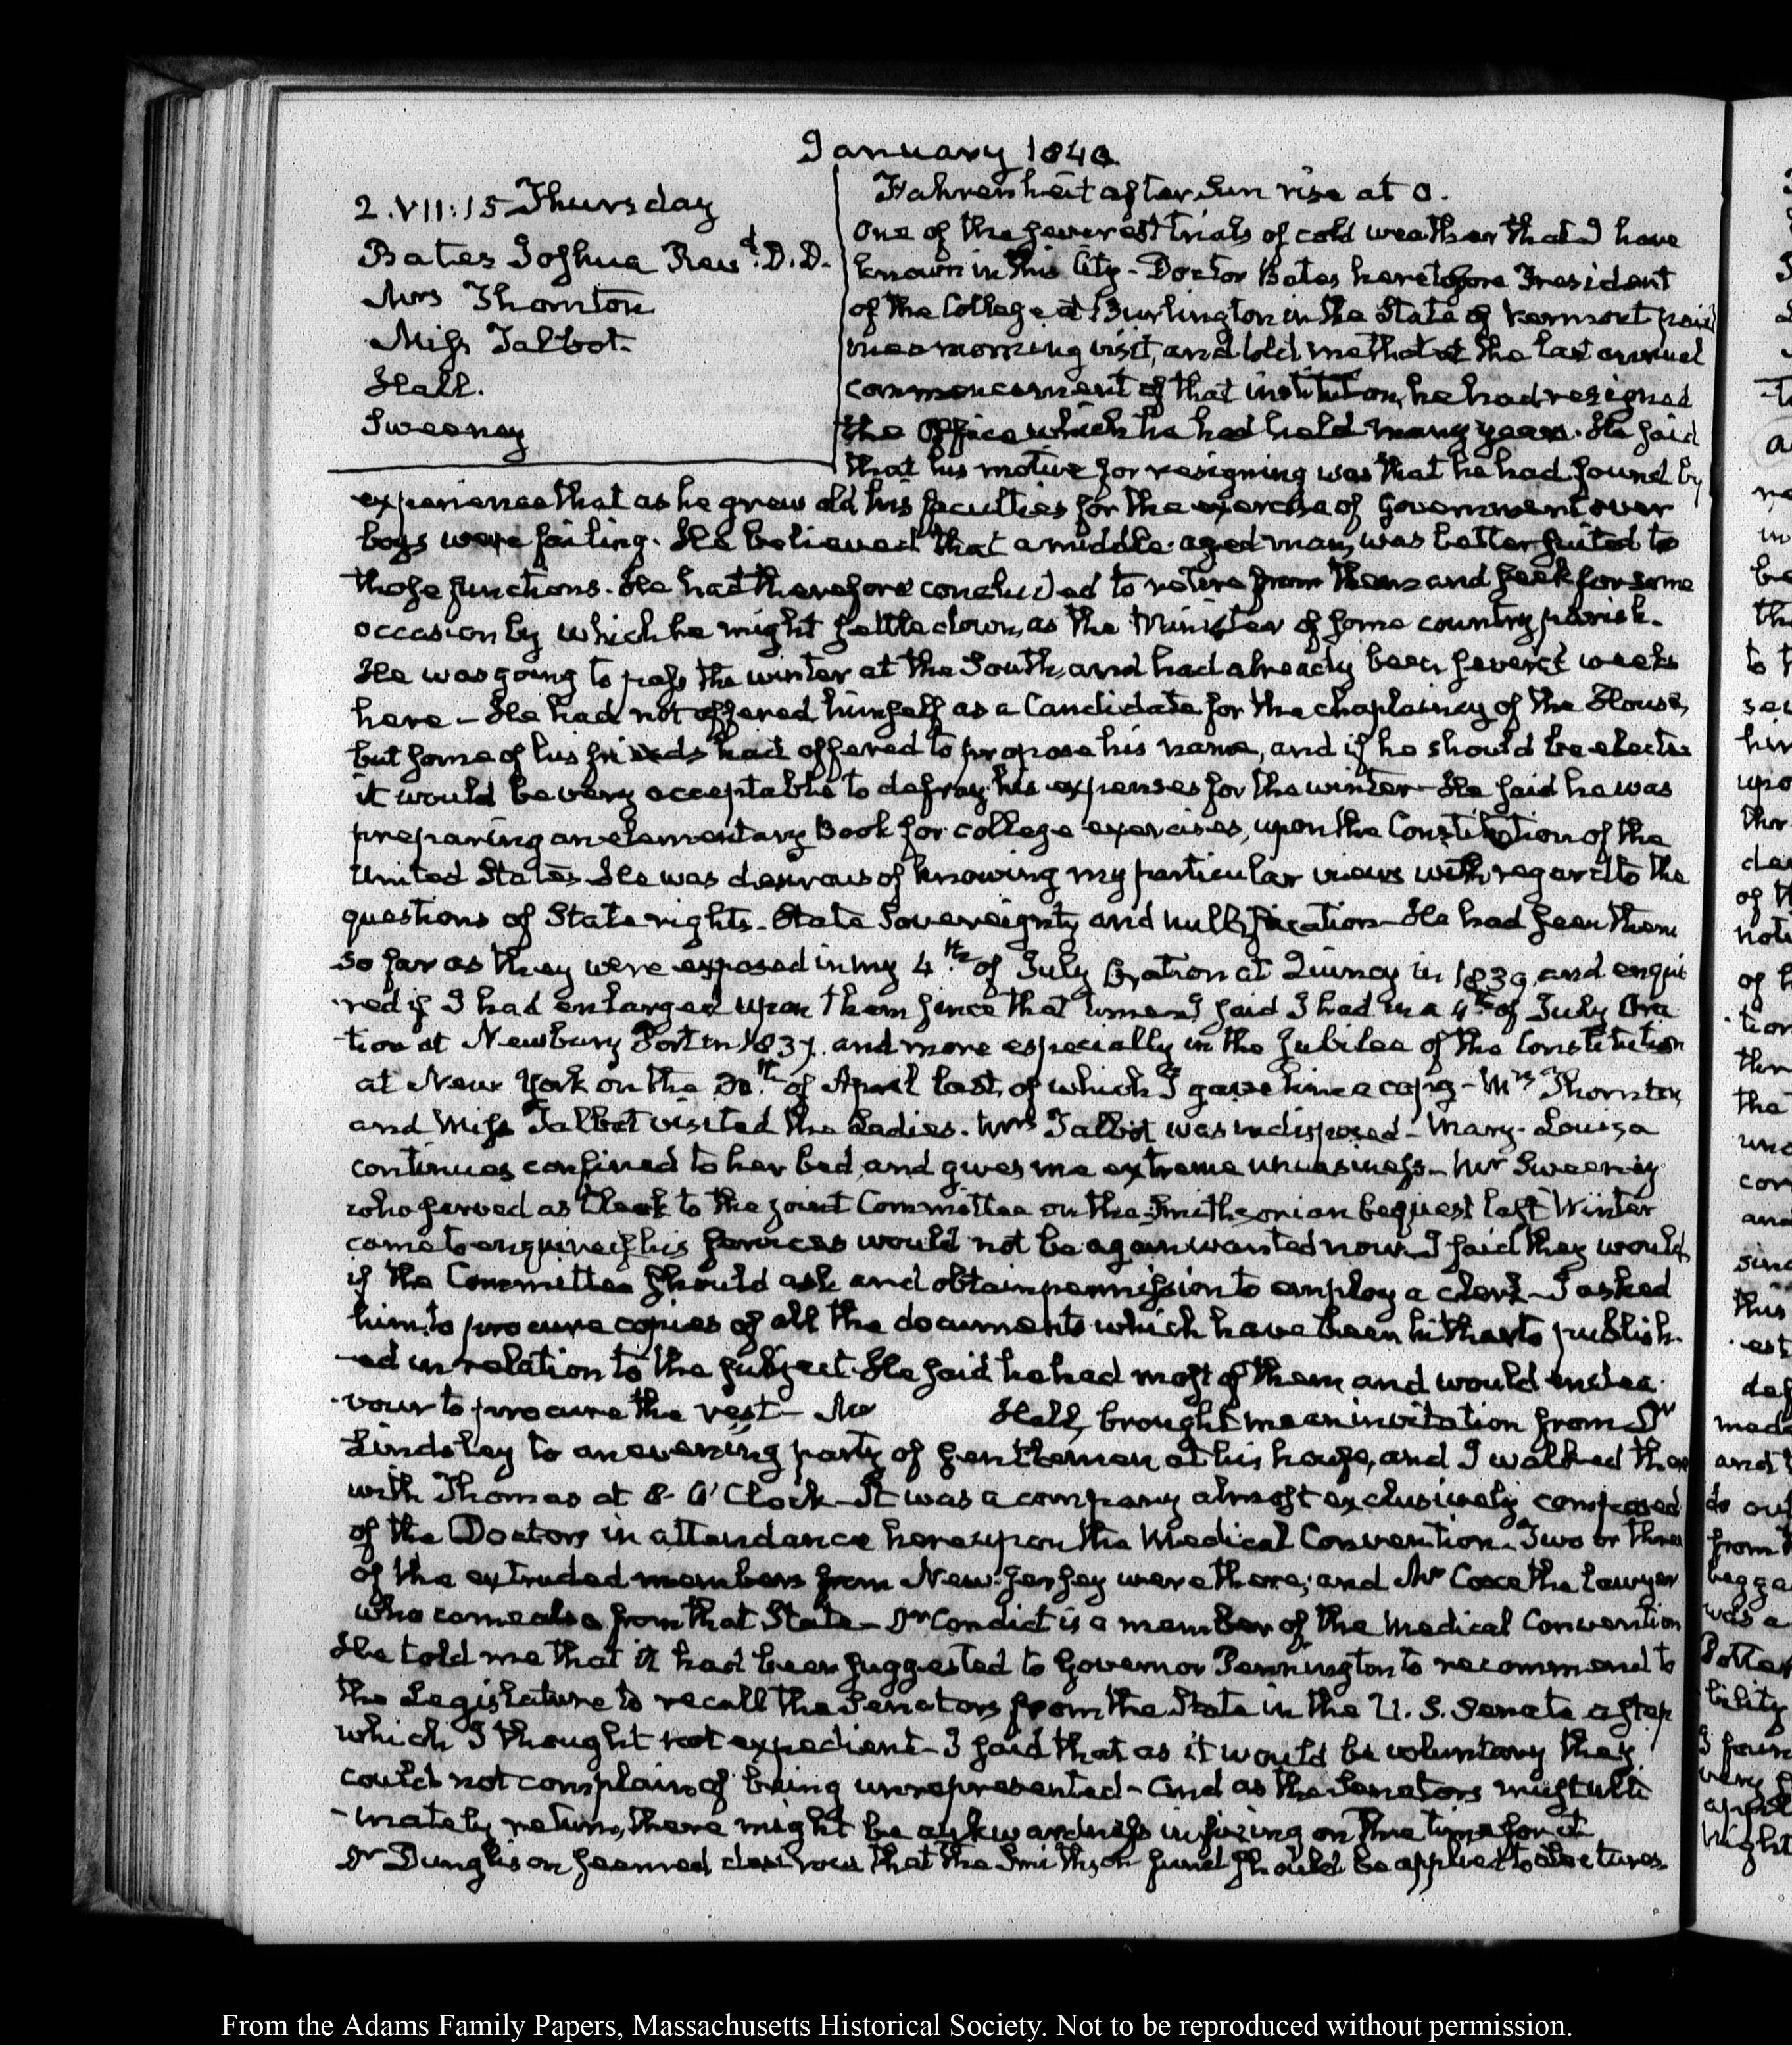 January 1840.
2. VII:15 Thursday
Bates Joshua Revd. D.D.
Mrs Thornton
Miss Talbot.
Hall.
Sweeney
Fahrenheit after Sun rise at 0.
One of the severest trials of cold weather that I have
known in this City - Doctor Bates heretofore President
of the College at Burlington in the State of Vermont paid
me a morning visit, and told me that at the last annual
commencement of that institution, he had resigned
the Office which he had held many years. He said
that his motive for resigning was that he had found by
experience that as he grew old his faculties for the exercise of Government over
boys were failing. He believed that a middle-aged man, was better suited to
those functions. He had therefore concluded to retire from them and seek for some
occasion by which he might settle down, as the Minister of some country parish.
He was going to pass the winter at the South, and had already been several weeks
here - He had not offered himself as a Candidate for the chaplaincy of the House,
but some of his friends had offered to propose his name, and if he should be elected
it would be very acceptable to defray his expenses for the winter - He said he was
preparing an elementary Book for college exercises, upon the Constitution of the
United States. He was desirous of knowing my particular views with regard to the
questions of State rights. State Sovereignty and nullification - He had seen them
so far as they were exposed in my 4th of July Oration at Quincy in 1839, and enqui
-red if I had enlarged upon them since that time. I said I had in a 4th of July Ora
-tion at Newbury Port in 1837. and more especially in the Jubilee of the Constitution
at New York on the 30th of April last, of which I gave him a copy - Mrs Thornton,
and Miss Talbot visited the Ladies. Mrs Talbot was indisposed - Mary-Louisa
continues confined to her bed, and gives me extreme uneasiness - Mr Sweeney
who served as Clerk to the joint Committee on the Smithsonian bequest last Winter
came to enquire if his services would not be again wanted now. I said they would,
if the Committee should ask and obtain permission to employ a clerk - I asked
him to procure copies of all the documents which have been hitherto publish-
-ed in relation to the subject. He said he had most of them and would endea-
-vour to procure the rest - Mr Hall, brought me an invitation from Dr
Lindsley to an evening party of gentlemen at his house, and I walked there
with Thomas at 8. O'Clock - It was a company almost exclusively composed
of the Doctors in attendance here upon the Medical Convention. Two or three
of the extruded members from New-Jersey were there; and Mr Coxe the Lawyer
who came also from that State - Dr Condict is a member of the Medical Convention
He told me that it had been suggested to Governor Pennington to recommend to
the Legislature to recall the Senators from the State in the U.S. Senate a step
which I thought not expedient - I said that as it would be voluntary they
could not complain of being unrepresented - And as the Senators must ulti
-mately return, there might be awkwardness in fixing on the time for it
Dr Dunglison seemed desirous that the Smithson fund should be applied to Lectures
From the Adams Family Papers, Massachusetts Historical Society. Not to be reproduced without permission.